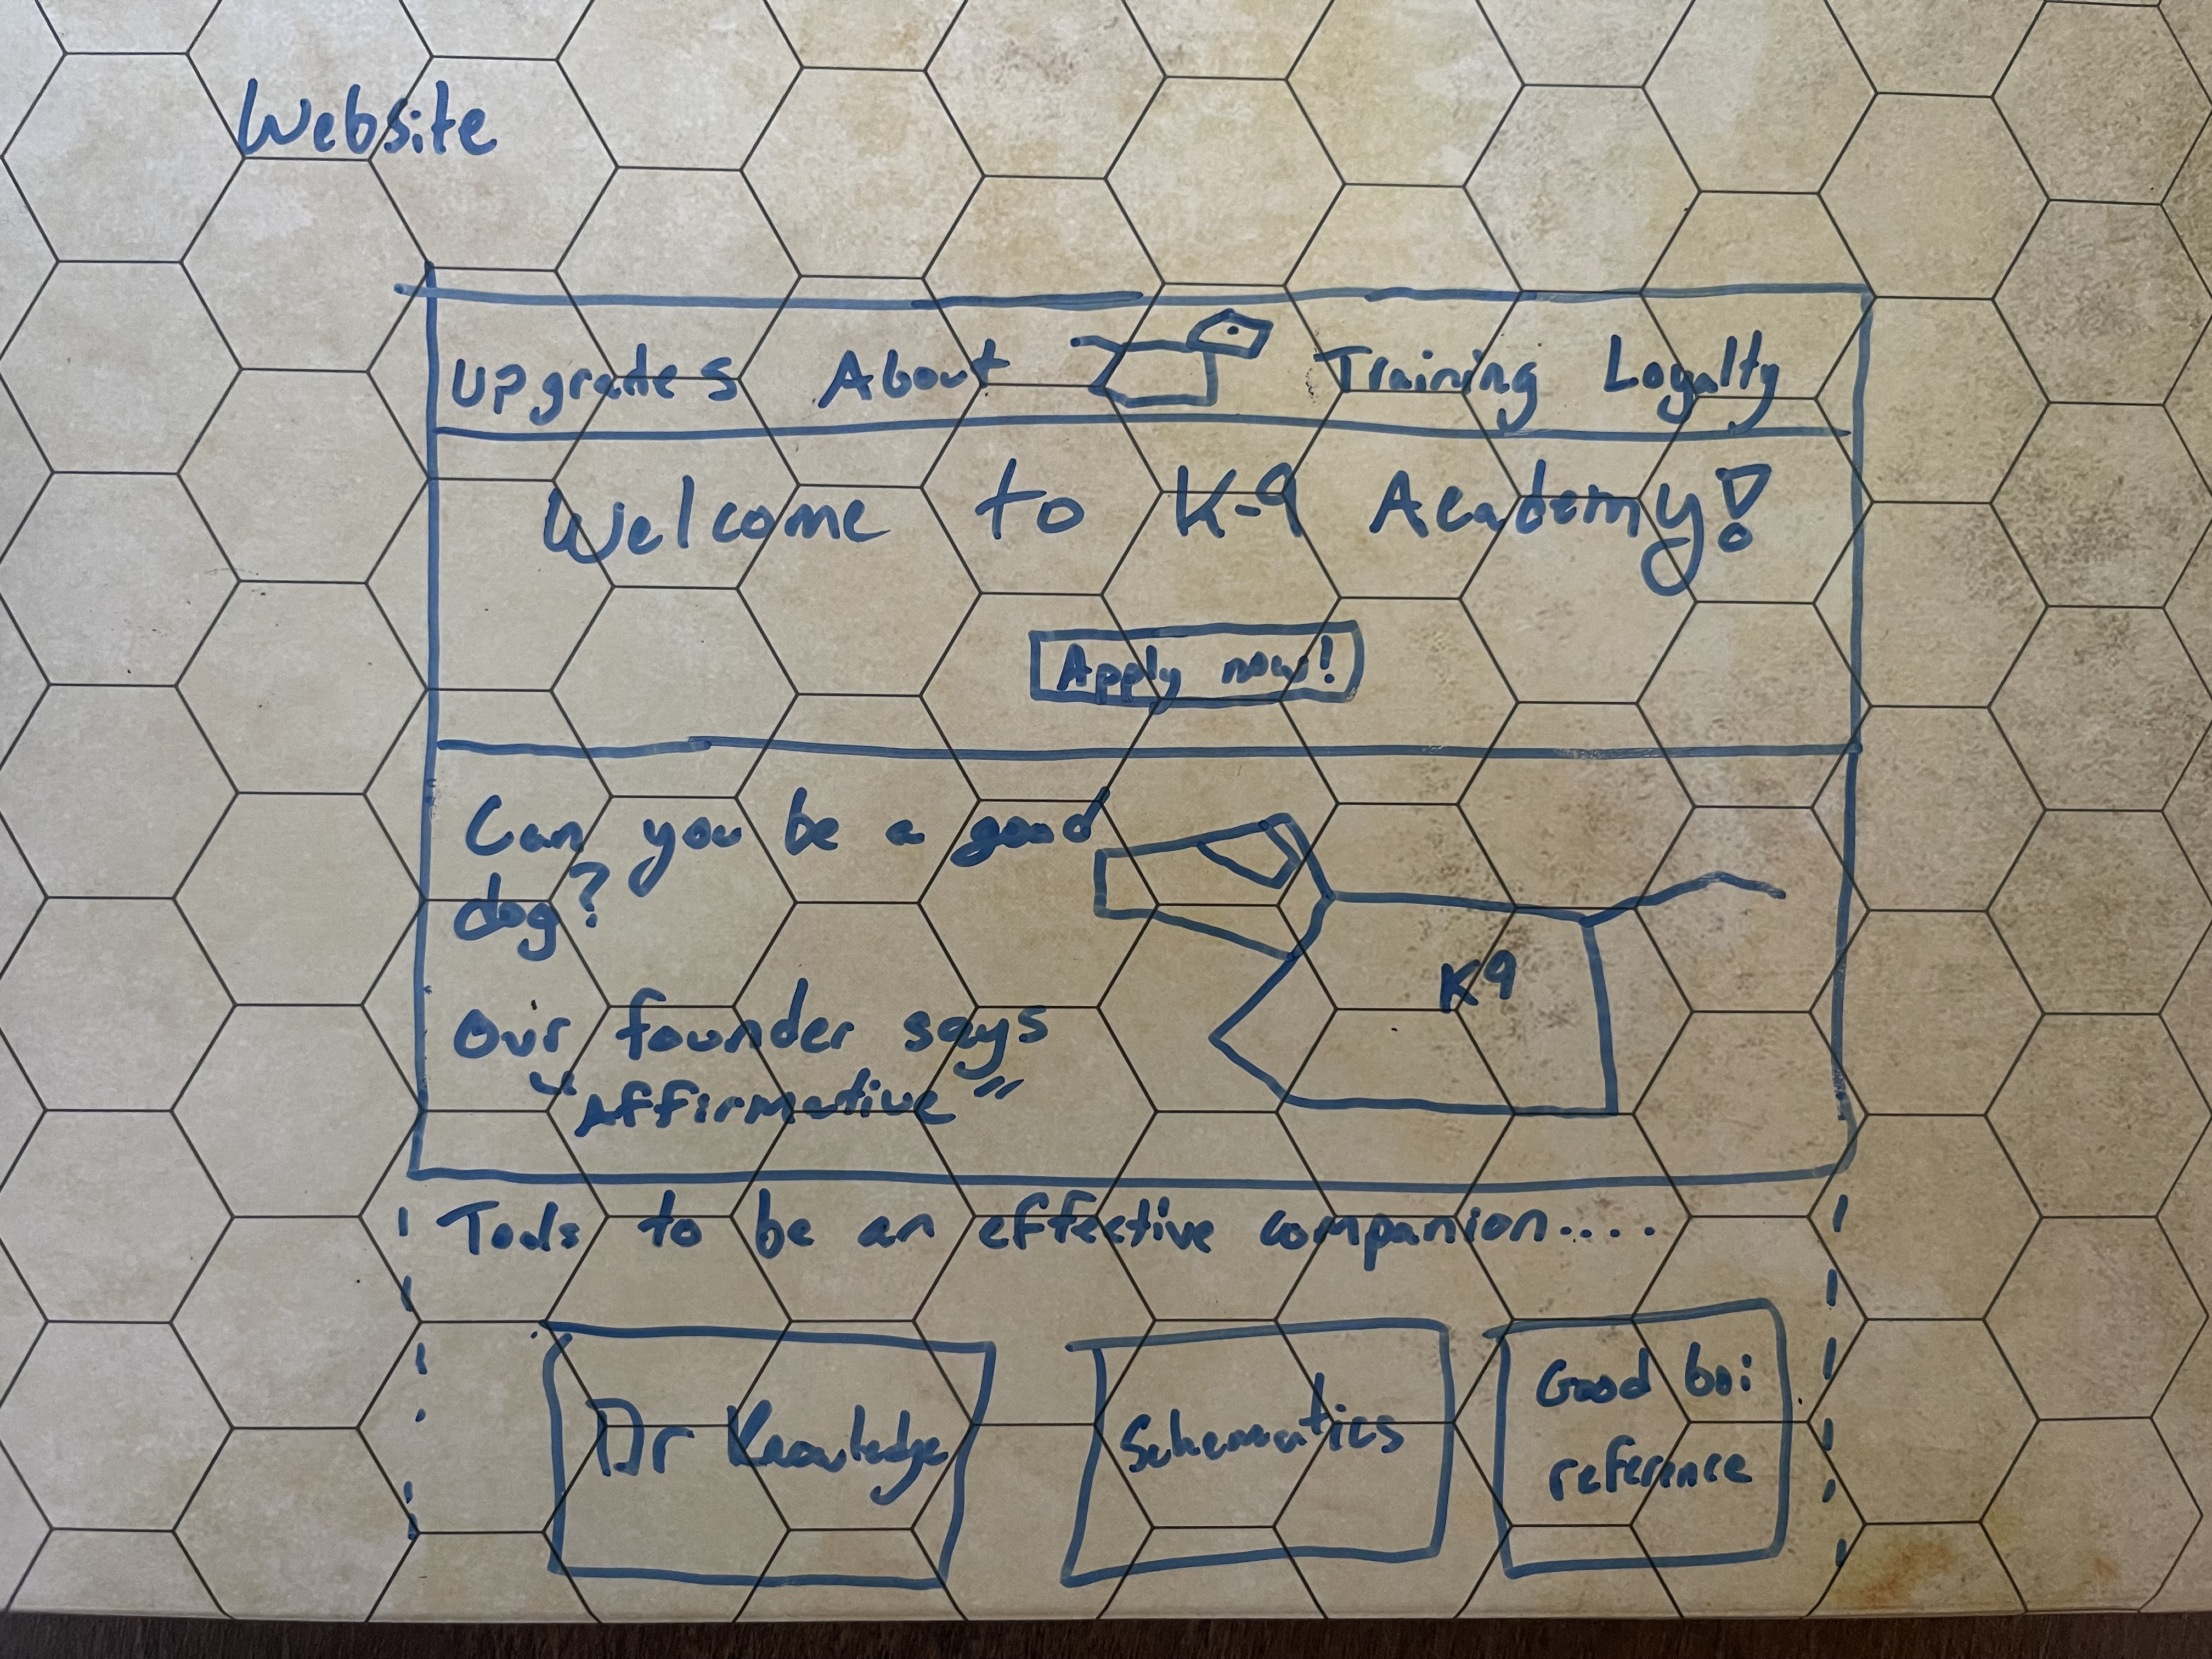 Website
Upgrades About Training Loyalty
Welcome to K-9 Academy!
Apply now!
Can you be a good
dog?
Our founder says
"Affirmative"
K9
Tools to be an effective companion....
Dr Knowledge
Schematics
Good boi
reference